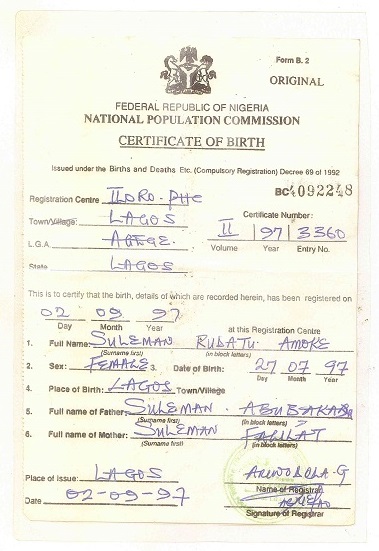 Form B. 2
ORIGINAL
FEDERAL REPUBLIC OF NIGERIA
NATIONAL POPULATION COMMISSION
CERTIFICATE OF BIRTH
Issued under the Births and Deaths Etc. (Compulsory Registration) Decree 69 of 1992
BC4092248
Registration Centre ILORO-PHC
Town/Village: LAGOS Certificate Number:
L.G.A AGEGE. II 97 3360
Volume Year Entry No.
State LAGOS
This is to certify that the birth, details of which are recorded herein, has been registered on
02 09 97
Day Month Year at this Registration Centre
1. Full Name: SULEMAN RUDATU AMOKE
(Surname first) (in block letters)
2. Sex: FEMALE 3. Date of Birth: 27 07 97
Day Month Year
4. Place of Birth: LAGOS Town/Village
5. Full name of Father: SULEMAN ABUBAKAR
(Surname first) (in block letters)
6. Full name of Mother: SULEMAN FALILAT
(Surname first) (in block letters)
Place of issue: LAGOS
Name of Registrar
Date 02-09-97
Signature of Registrar